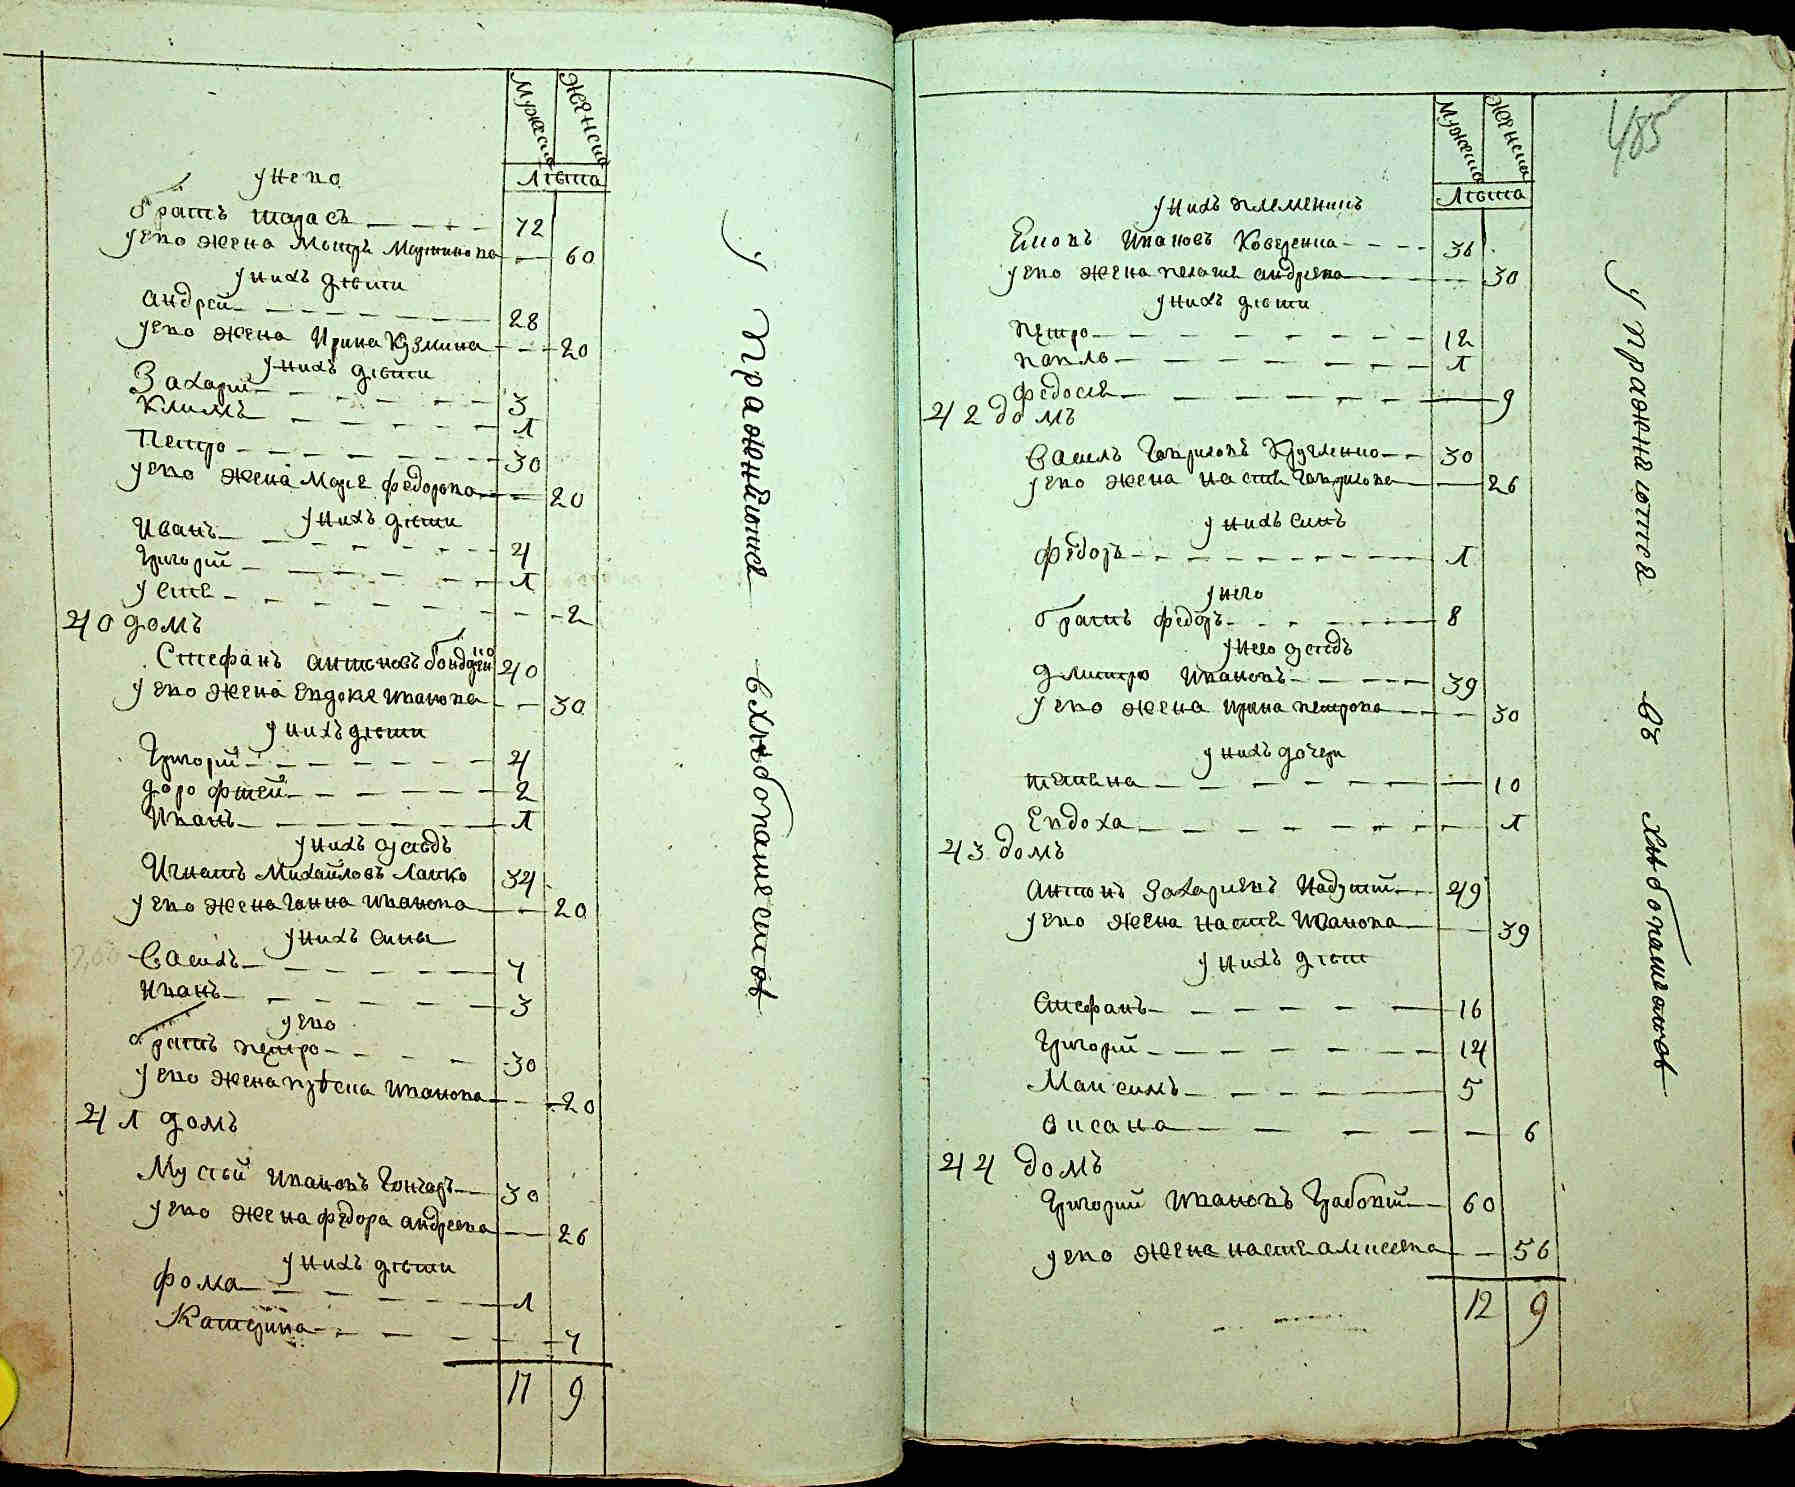 Мужеска
Женска
Лѣта
у него
братъ тарасъ 72
у его жена Мотря Мартинова 60
у нихъ дѣти
андрей 28
у его жена Ирина Кузмина 20
у нихъ дѣти
Захарий 3
Климъ 1
Петро 30
у его жена Маря федорова 20
у нихъ дѣти
Иванъ 4
Григорий 1
устя 2
40 домъ
Стефанъ антоновъ 40
у его жена Евдокея иванова 30
у нихъ дѣти
Григорий 4
дорофтей 2
Иванъ 1
у нихъ сусѣдъ
Игнатъ Михайловъ Лапко 34
у его жена Ганна иванова 20
у нихъ сины
Василь 7
Иванъ 3
у его
братъ петро 30
у его жена иванова 20
41 домъ
Мусѣй ивановъ Гончаръ 30
у его жена федора андреева 26
у нихъ дѣти
фома 1
Катерина 7
17 9
упражнаются
в хлѣбопашествѣ
485
Мужеска
Женска
Лѣта
у нихъ племенникъ
ивановъ 36
у его жена пелагея андреева 30
у нихъ дѣти
петро 12
павло 1
федося 9
42 домъ
Василь Гавриловъ Кругленко 30
у его жена настя Гаврилова 26
у нихъ синъ
федоръ 1
у него
братъ федоръ 8
у него сусѣдъ
дмитро ивановъ 39
у его жена ирина петрова 30
у нихъ дочери
тетяна 10
Евдоха 1
43 домъ
антонъ Захариевъ 49
у его жена настя Иванова 39
у нихъ дѣти
Стефанъ 16
Григорий 14
Максимъ 5
оксана 6
44 домъ
Григорий ивановъ 60
у его жена настя алисеева 56
12 9
упражнаются
въ
хлѣбопашествѣ